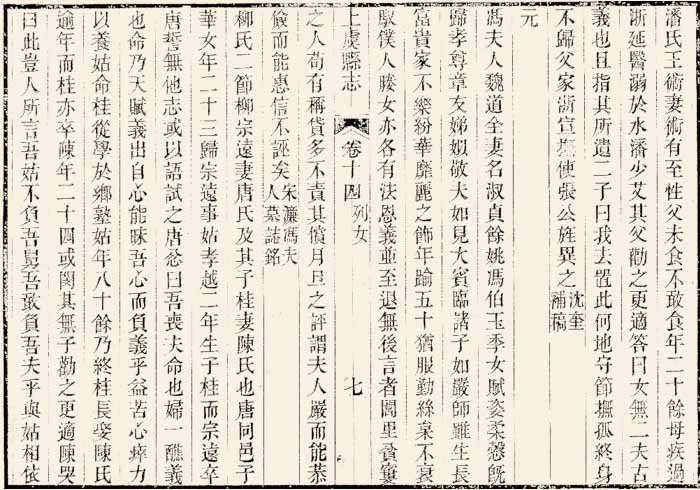 潘氏王術妻術有至性父未食不敢食年二十餘母疾過
浙延醫溺於水潘少艾其父勸之更適答曰女無二夫古
義也且指其所遺二子曰我去置此何地守節撫孤終身
不歸父家浙宣撫使張公旌異之沈奎補稿
元
馮夫人魏道全妻名淑貞餘姚馮伯玉季女賦姿柔慤旣
歸孝尊章友娣姒敬夫如見大賓臨諸子如嚴師雖生長
富貴家不樂紛華靡麗之飾年踰五十猶服勤絲枲不衰
馭僕人媵女亦各有法恩義並至退無後言者閭里貧窶
上虞縣志 卷十四 列女 七
之人苟有稱貸多不責其償月旦之評謂夫人嚴而能恭
儉而能惠信不誣矣宋濂馮夫人墓誌銘
柳氏二節柳宗遠妻唐氏及其子桂妻陳氏也唐同邑子
華女年二十三歸宗遠事姑孝越二年生子桂而宗遠卒
唐誓無他志或以語試之唐忿曰吾喪夫命也婦一醮義
也命乃天賦義出自心能昧吾心而負義乎益苦心瘁力
以養姑命桂從學於鄉塾姑年八十餘乃終桂長娶陳氏
逾年而桂亦卒陳年二十四或閔其無子勸之更適陳哭
曰此豈人所言吾姑不負吾舅吾敢負吾夫乎與姑相依